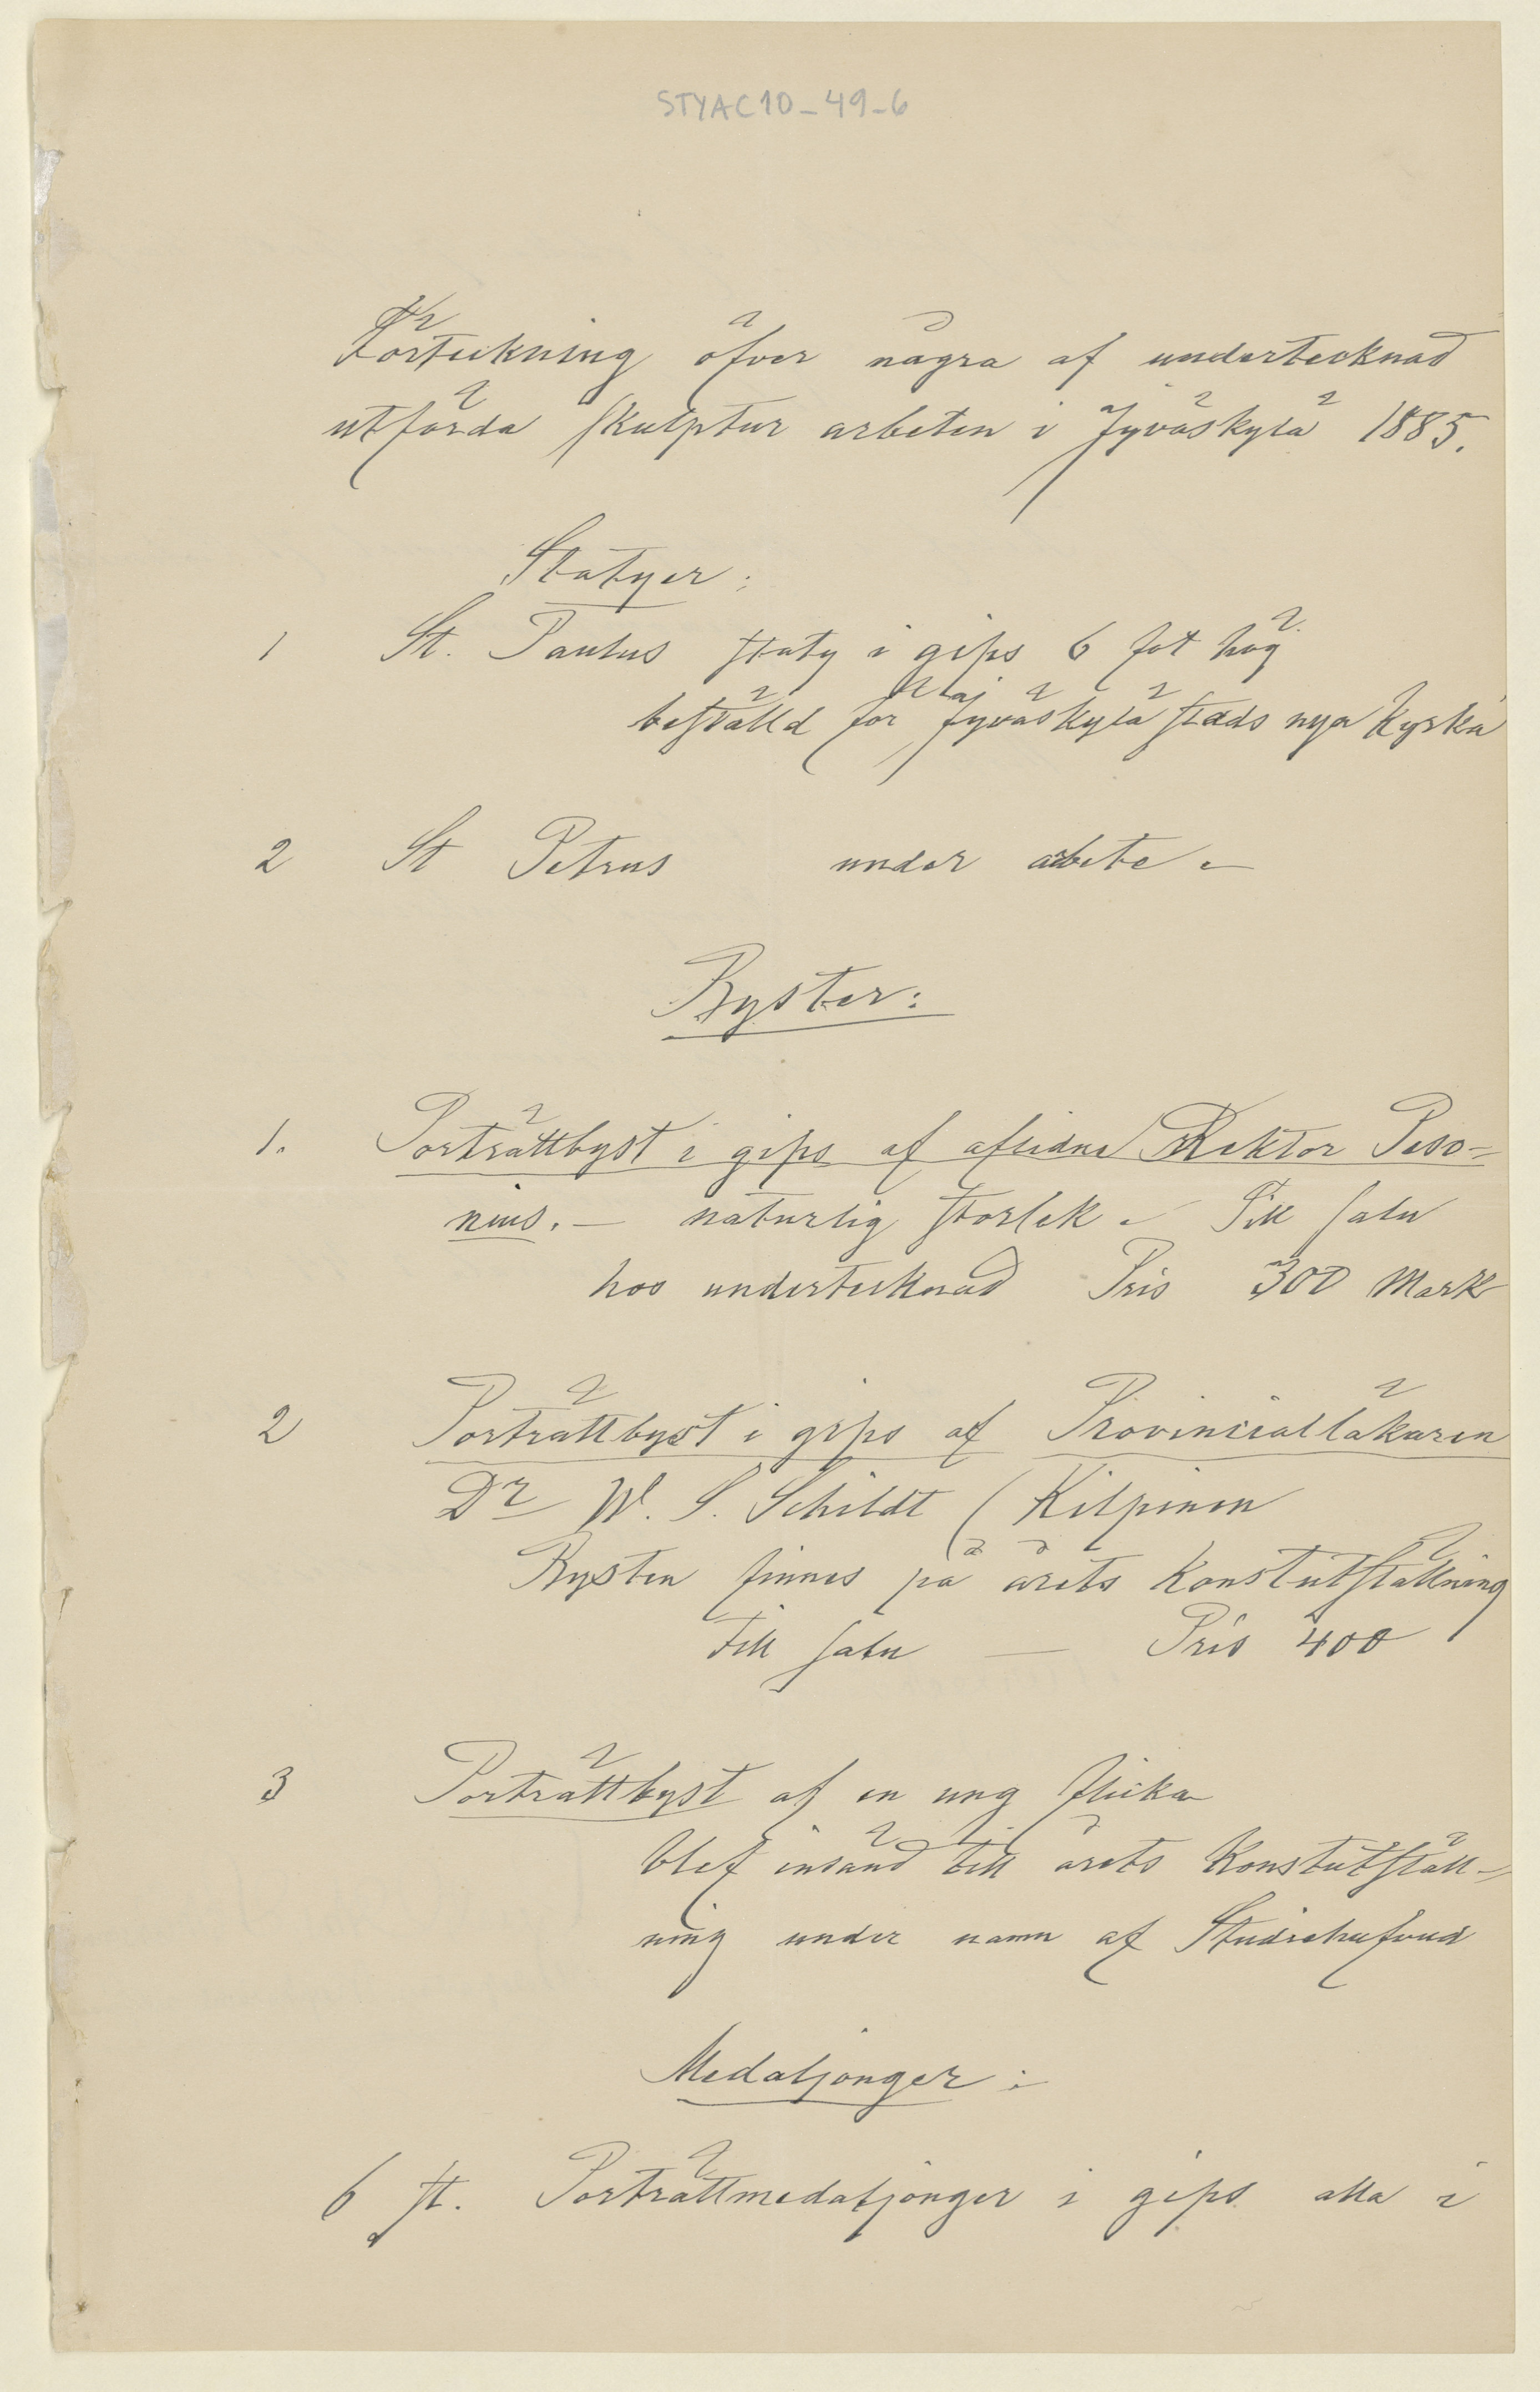 STYAC10_49_6
Förteckning öfver några af undertecknad
utförda skulptur arbeten i Jyväskylä 1885.
Statyer:
1 St. Paulus staty i gips 6 fot hög
beställd för Jyväskylä stads nya Kyrka
2 St Petrus under arbete –
Byster:
1. Porträttbyst i gips af aflidne Rektor Peso=
nius. – naturlig storlek – Till salu
hos undertecknad Pris 300 Mark
2 Porträttbyst i gips af Provincialläkaren
Dr W. S. Schildt (Kilpinen
Bysten finnes på årets Konstutställning
till salu — Pris 400
3 Porträttbyst af en ung flicka
blef insänd till årets Konstutställ=
ning under namn af Studiehufvud
Medaljonger:
6 st. Porträttmedaljonger i gips alla i